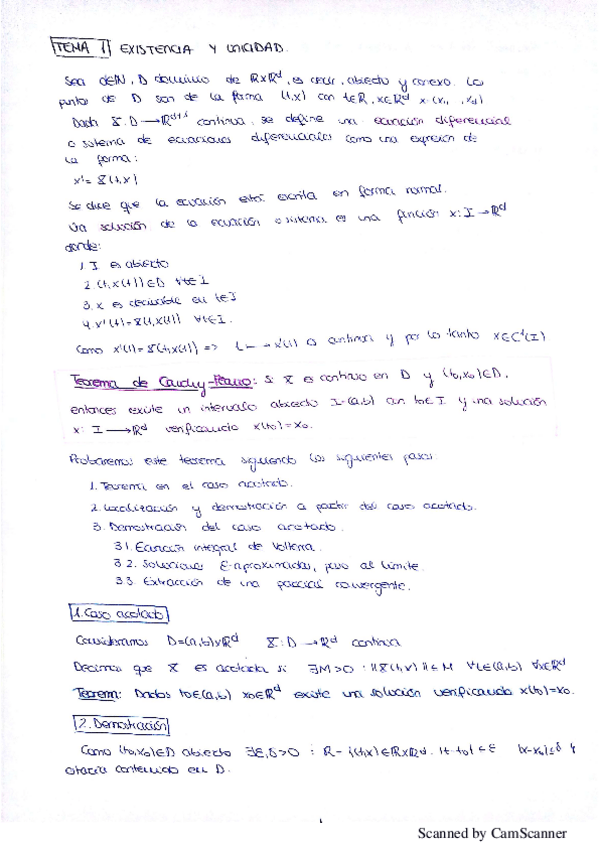 TEMA 1 EXISTENCIA Y UNICIDAD.
Sea d∈N, D dominio de R×R^d, es decir, abierto y conexo. Los
puntos de D son de la forma (t,x) con t∈R, x∈R^d x=(x₁,...,x_d)
Dada X: D → R^d+1 continua, se define una ecuación diferencial
o sistema de ecuaciones diferenciales como una expresión de
la forma:
x'= X(t,x)
Se dice que la ecuación está escrita en forma normal.
Una solución de la ecuación o sistema es una función x: I → R^d
donde:
1. I es abierto
2. (t,x(t))∈D ∀t∈I
3. x es derivable en t∈I
4. x'(t)=X(t,x(t)) ∀t∈I.
Como x'(t)=X(t,x(t)) => t → x'(t) es continua y por lo tanto x∈C¹(I)
Teorema de Cauchy-Peano: Si X es continuo en D y (t₀,x₀)∈D,
entonces existe un intervalo abierto I=(a,b) con t₀∈I y una solución
x: I → R^d verificando x(t₀)=x₀.
Probaremos este teorema siguiendo los siguientes pasos:
1. Teorema en el caso acotado.
2. Localización y demostración a partir del caso acotado.
3. Demostración del caso acotado.
3.1. Ecuación integral de Volterra.
3.2. Soluciones ε-aproximadas, paso al límite.
3.3. Extracción de una parcial convergente.
1. Caso acotado
Consideramos D=(a,b)×R^d X: D → R^d continua
Decimos que X es acotada si ∃M>0 : ||X(t,x)|| ≤ M ∀t∈(a,b) ∀x∈R^d
Teorema: Dados t₀∈(a,b) x₀∈R^d existe una solución verificando x(t₀)=x₀.
2. Demostración
Como (t₀,x₀)∈D abierto ∃ε,δ>0 : R= {(t,x)∈R×R^d: |t-t₀| ≤ ε |x-x₀|≤δ}
contenido en D.
Scanned by CamScanner